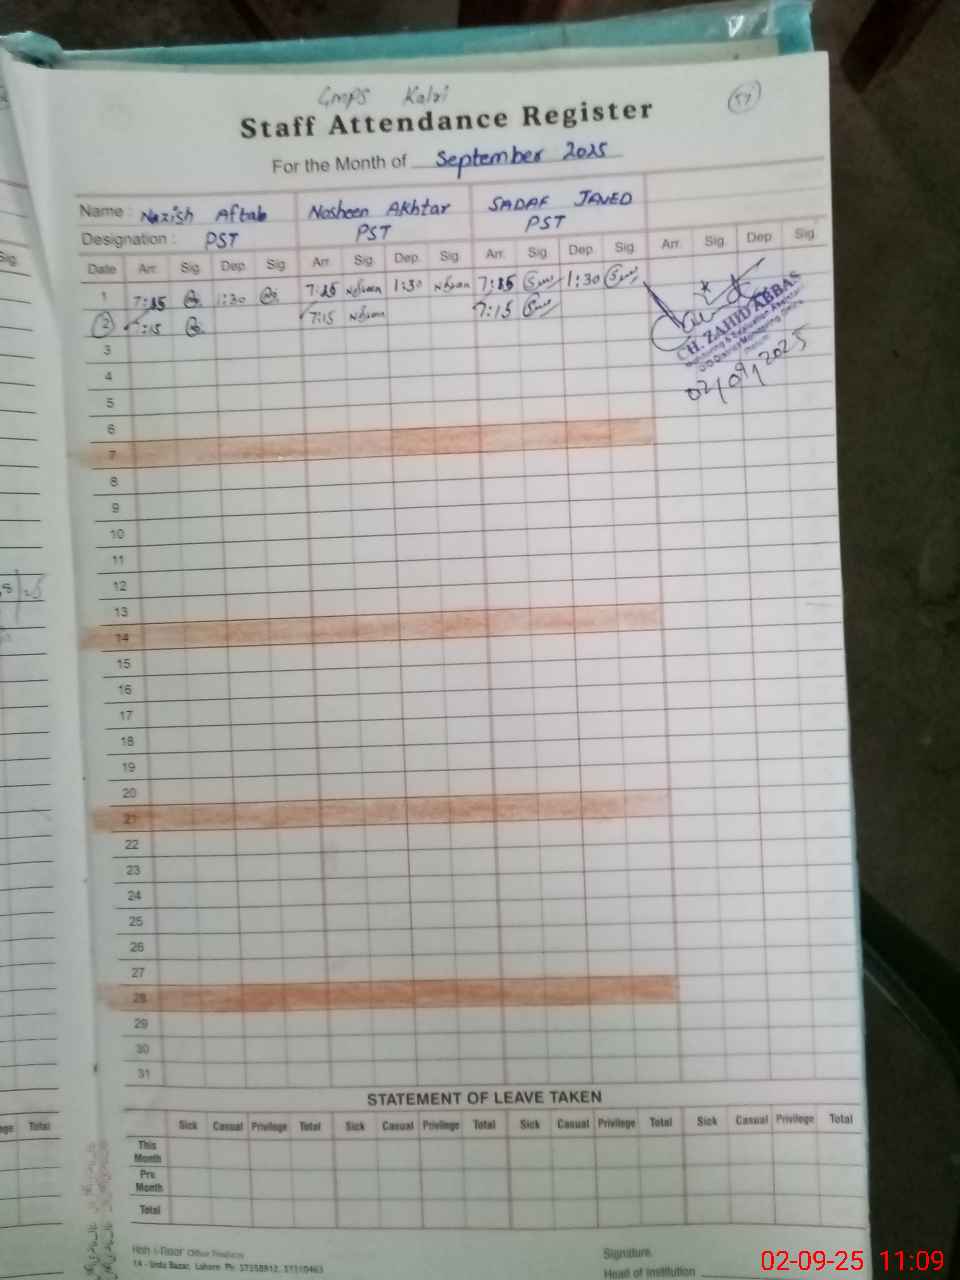 GMPS Kalri
57
Staff Attendance Register
For the Month of September 2025
Name : Nazish Aftab Nosheen Akhtar SADAF JAVED
Designation : PST PST PST
Date Arr. Sig. Dep. Sig Arr. Sig. Dep. Sig Arr. Sig. Dep. Sig Arr. Sig. Dep. Sig
1 7:15 1:30 7:15 1:30 7:15 1:30
2 7:15 7:15 7:15
CH. ZAHID ABBAS
Monitoring & Evaluation Assistant
02/09/2025
3
4
5
6
7
8
9
10
11
12
13
14
15
16
17
18
19
20
21
22
23
24
25
26
27
28
29
30
31
STATEMENT OF LEAVE TAKEN
Sick Casual Privilege Total Sick Casual Privilege Total Sick Casual Privilege Total Sick Casual Privilege Total
This Month
Pre Month
Total
Koh-i-Noor Office Products
14 - Urdu Bazar, Lahore. Ph: 37358912, 37310463
Signature
Head of Institution
Sig.
Total
02-09-25 11:09